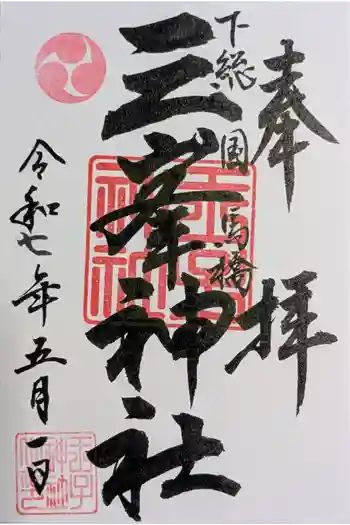 奉拝
下総国馬橋
三峯神社
令和七年五月一日